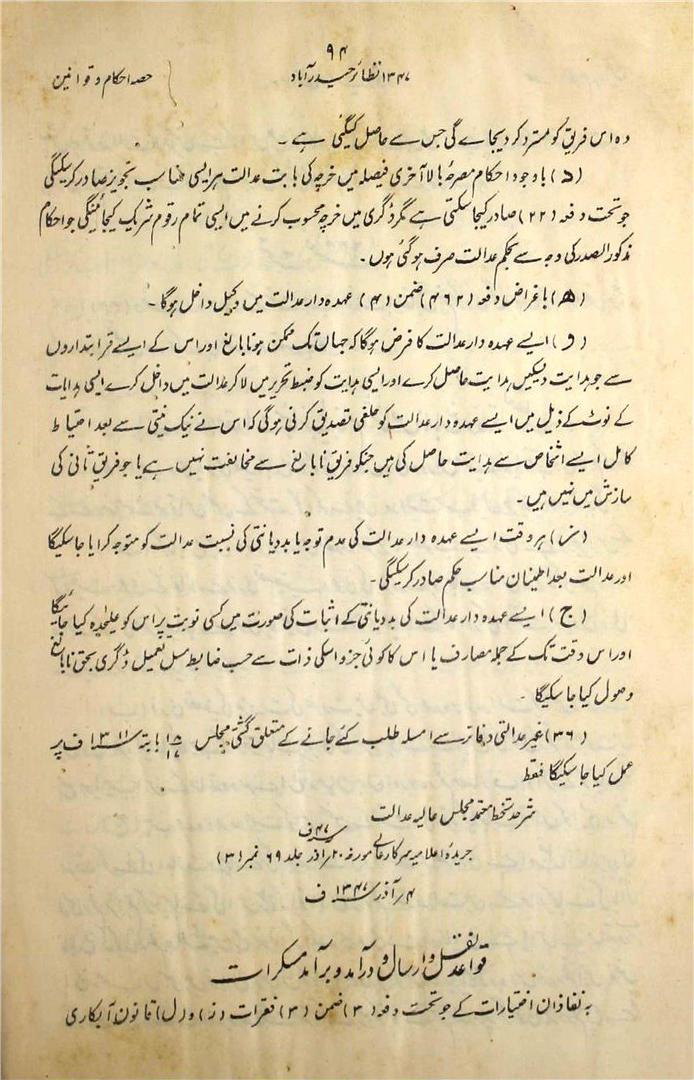 ۹۴
۱۳۴۷ نظائر حیدرآباد
حصہ احکام و قوانین
وہ اس فریق کو مسترد کردیجاے گی جس سے حاصل کیگئی ہے ۔
(د) باوجود احکام مصرحہ بالا آخری فیصلہ میں خرچہ کی بابت عدالت ہر ایسی مناسب تجویز صادر کرسکیگی
جو تحت دفعہ (۲۲) صادر کیجاسکتی ہے مگر ڈگری میں خرچہ محسوب کرنے میں ایسی تمام رقوم شریک کیجائینگی جو احکام
مذکور الصدر کی وجہ سے بحکم عدالت صرف ہوگئی ہوں ۔
(ھ) باغراض دفعہ (۴۶۲) ضمن (۴) عہدہ دار عدالت میں وکیل داخل ہوگا ۔
(و) ایسے عہدہ دار عدالت کا فرض ہوگا کہ جہاں تک ممکن ہو نابالغ اور اس کے ایسے قرابتداروں
سے جو ہدایت دیسکیں ہدایت حاصل کرے اور ایسی ہدایت کو ضبط تحریر میں لاکر عدالت میں داخل کرے ایسی ہدایات
کے نوٹ کے ذیل میں ایسے عہدہ دار عدالت کو حلفی تصدیق کرنی ہوگی کہ اس نے نیک نیتی سے بعد احتیاط
کامل ایسے اشخاص سے ہدایت حاصل کی ہیں جنکو فریق نابالغ سے مخالفت نہیں ہے یا جو فریق ثانی کی
سازش میں نہیں ہیں ۔
(ز) ہر وقت ایسے عہدہ دار عدالت کی عدم توجہ یا بددیانتی کی نسبت عدالت کو متوجہ کرایا جاسکیگا
اور عدالت بعد اطمینان مناسب حکم صادر کرسکیگی ۔
(ح) ایسے عہدہ دار عدالت کی بددیانتی کے اثبات کی صورت میں کسی نوبت پر اس کو علیٰحدہ کیا جائیگا
اور اس وقت تک کے جملہ مصارف یا اس کا کوئی جزو اسکی ذات سے حسب ضابطہ مسل تعمیل ڈگری بحق نابالغ
وصول کیا جاسکیگا ۔
(۳۶) غیر عدالتی دفاتر سے امسلہ طلب کئے جانے کے متعلق گشتی مجلس بابتہ ۱۳۱۱ ف پر
عمل کیا جاسکیگا فقط
شرحدستخط معتمد مجلس عالیہ عدالت
جریدہ اعلامیہ سرکار عالی مورخہ ۲۰ آذر ۴۷ف جلد ۶۹ نمبر (۳)
۴ آذر ۱۳۴۷ ف
قواعد نقل و ارسال و درآمد و برآمد مسکرات
بہ نفاذ ان اختیارات کے جو تحت دفعہ (۳) ضمن (۳) فقرات (ز) و (ل) قانون آبکاری